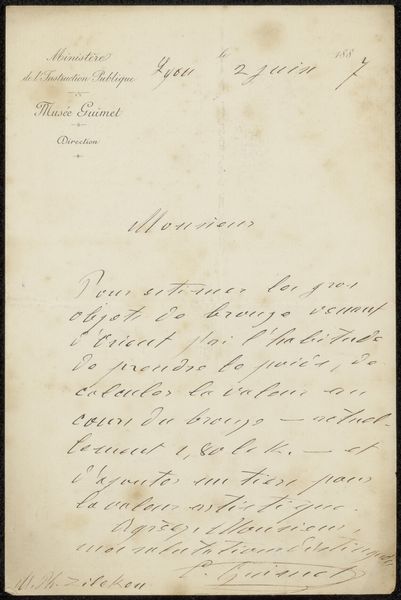 Ministère
de l'Instruction Publique
Musée Guimet
Direction
Lyon le 2 juin 1887
Monsieur
Pour estimer les gros
objets de bronze venant
d'orient j'ai l'habitude
de prendre le poids, de
calculer la valeur au
cours du bronze — actuel-
lement 1,80 le k. — et
d'ajouter un tiers pour
la valeur artistique.
Agréez, Monsieur,
mes salutations distinguées
E. Guimet
M. Ph. Zilcken